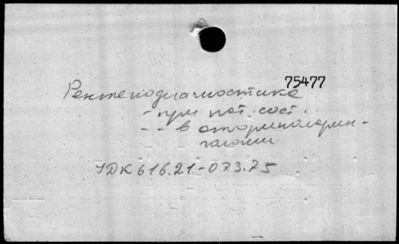 75477
Рентгенодиагностика
- при пат. сост.
- - в оторинеларин-
гологии
УДК 616.21-073.75